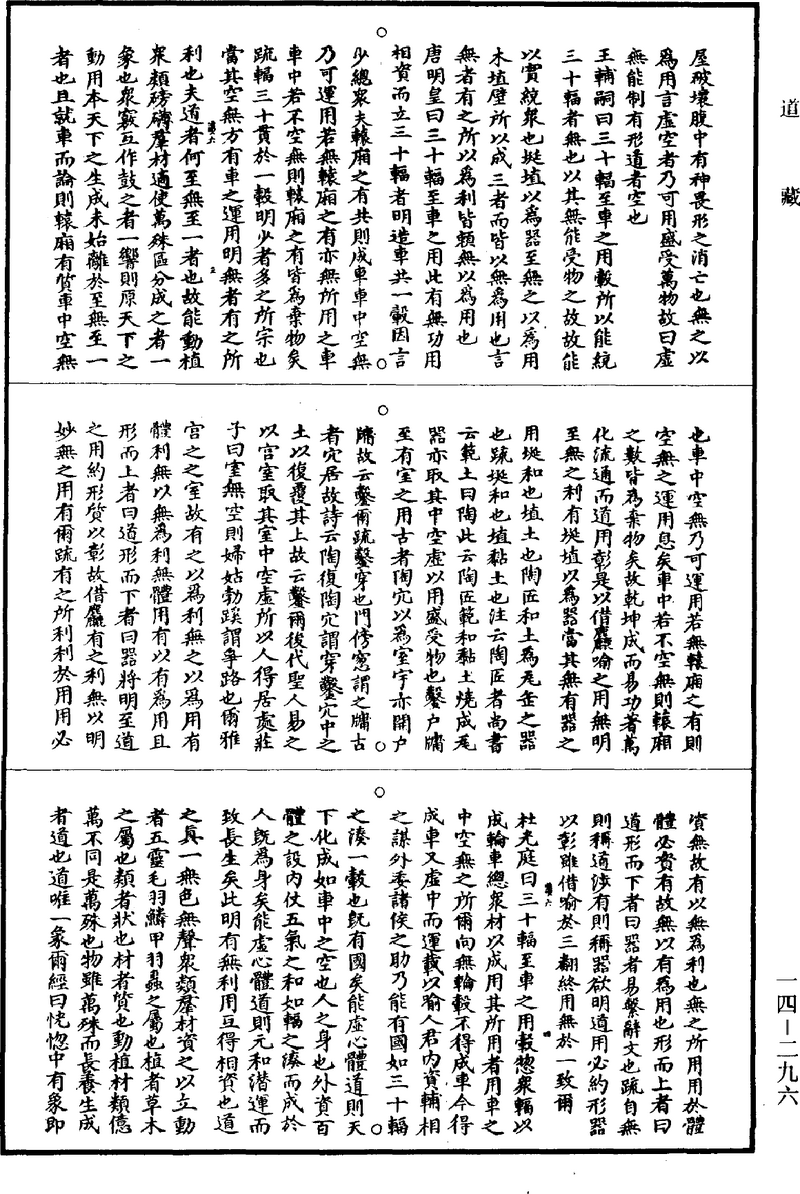 道藏
屋破壞腹中有神畏形之消亡也無之以
為用言虛空者乃可用盛受萬物故曰虛
無能制有形道者空也
王輔嗣曰三十輻至車之用轂所以能統
三十輻者無也以其無能受物之故故能
以實統衆也埏埴以為器至無之以為用
木埴壁所以成三者而皆以無為用也言
無者有之所以為利皆賴無以為用也
唐明皇曰三十輻至車之用此有無功用
相資而立三十輻者明造車共一轂因言
少總衆夫轅廂之有共則成車車中空無
乃可運用若無轅廂之有亦無所用之車
車中若不空無則轅廂之有皆為棄物矣
疏輻三十貫於一轂明少者多之所宗也
當其空無方有車之運用明無者有之所
利也夫道者何至無至一者也故能動植
衆類磅礴羣材適使萬殊區分成之者一
象也衆竅互作鼓之者一響則原天下之
動用本天下之生成未始離於至無至一
者也且就車而論則轅廂有質車中空無
也車中空無乃可運用若無轅廂之有則
空無之運用息矣車中若不空無則轅廂
之數皆為棄物矣故乾坤成而易功著萬
化流通而道用彰是以借麤喻之用無明
至無之利有埏埴以為器當其無有器之
用埏和也埴土也陶匠和土為瓦缶之器
也疏埏和也埴黏土也注云陶匠者尚書
云範土曰陶此云陶匠範和黏土燒成瓦
器亦取其中空虛以用盛受物也鑿户牖
至有室之用古者陶穴以為室宇亦開户
牖故云鑿爾疏鑿穿也門傍窻謂之牖古
者穴居故詩云陶復陶穴謂穿鑿穴中之
土以復覆其上故云鑿爾後代聖人易之
以宫室取其室中空虛所以人得居處莊
子曰室無空則婦姑勃蹊謂爭路也爾雅
宫之之室故有之以為利無之以為用有
體利無以無為利無體用有以有為用且
形而上者曰道形而下者曰器將明至道
之用約形質以彰故借麤有之利無以明
妙無之用有爾疏有之所利利於用用必
資無故有以無為利也無之所用用於體
體必資有故無以有為用也形而上者曰
道形而下者曰器者易繫辭文也疏自無
則稱道涉有則稱器欲明道用必約形器
以彰雖借喻於三翻終用無於一致爾
杜光庭曰三十輻至車之用轂揔衆輻以
成輪車總衆材以成用其所用者用車之
中空無之所爾向無輪轂不得成車今得
成車又虛中而運載以喻人君内資輔相
之謀外委諸侯之助乃能有國如三十輻
之湊一轂也旣有國矣能虛心體道則天
下化成如車中之空也人之身也外資百
體之設内仗五氣之和如輻之湊而成於
人旣為身矣能虛心體道則元和潛運而
致長生矣此明有無利用互得相資也道
之真一無色無聲衆類羣材資之以立動
者五靈毛羽鱗甲羽蟲之屬也植者草木
之屬也類者狀也材者質也動植材類億
萬不同是萬殊也物雖萬殊而長養生成
者道也道唯一象爾經曰恍惚中有象即
一四－二九六